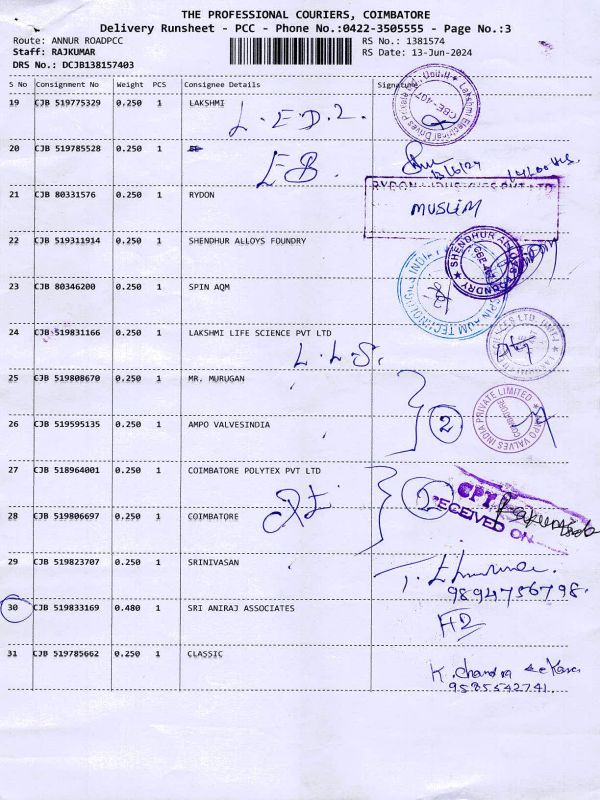 THE PROFESSIONAL COURIERS, COIMBATORE
Delivery Runsheet - PCC - Phone No.:0422-3505555 - Page No.:3
Route: ANNUR ROADPCC RS No.: 1381574
Staff: RAJKUMAR RS Date: 13-Jun-2024
DRS No.: DCJB138157403
S No Consignment No Weight PCS Consignee Details Signature
19 CJB 519775329 0.250 1 LAKSHMI
L.E.D.2.
CBE-407
20 CJB 519785528 0.250 1
EB
13/6/24
21 CJB 80331576 0.250 1 RYDON
MUSLIM
22 CJB 519311914 0.250 1 SHENDHUR ALLOYS FOUNDRY
SHENDHUR ALLOYS FOUNDRY
23 CJB 80346200 0.250 1 SPIN AQM
24 CJB 519831166 0.250 1 LAKSHMI LIFE SCIENCE PVT LTD
L.L.S.
25 CJB 519808670 0.250 1 MR. MURUGAN
2
26 CJB 519595135 0.250 1 AMPO VALVESINDIA
AMPO VALVES INDIA PRIVATE LIMITED
27 CJB 518964001 0.250 1 COIMBATORE POLYTEX PVT LTD
2
CPT
RECEIVED ON
28 CJB 519806697 0.250 1 COIMBATORE
29 CJB 519823707 0.250 1 SRINIVASAN
9894756798.
30 CJB 519833169 0.480 1 SRI ANIRAJ ASSOCIATES
31 CJB 519785662 0.250 1 CLASSIC
K. Chandra Sekaran
9585542741.